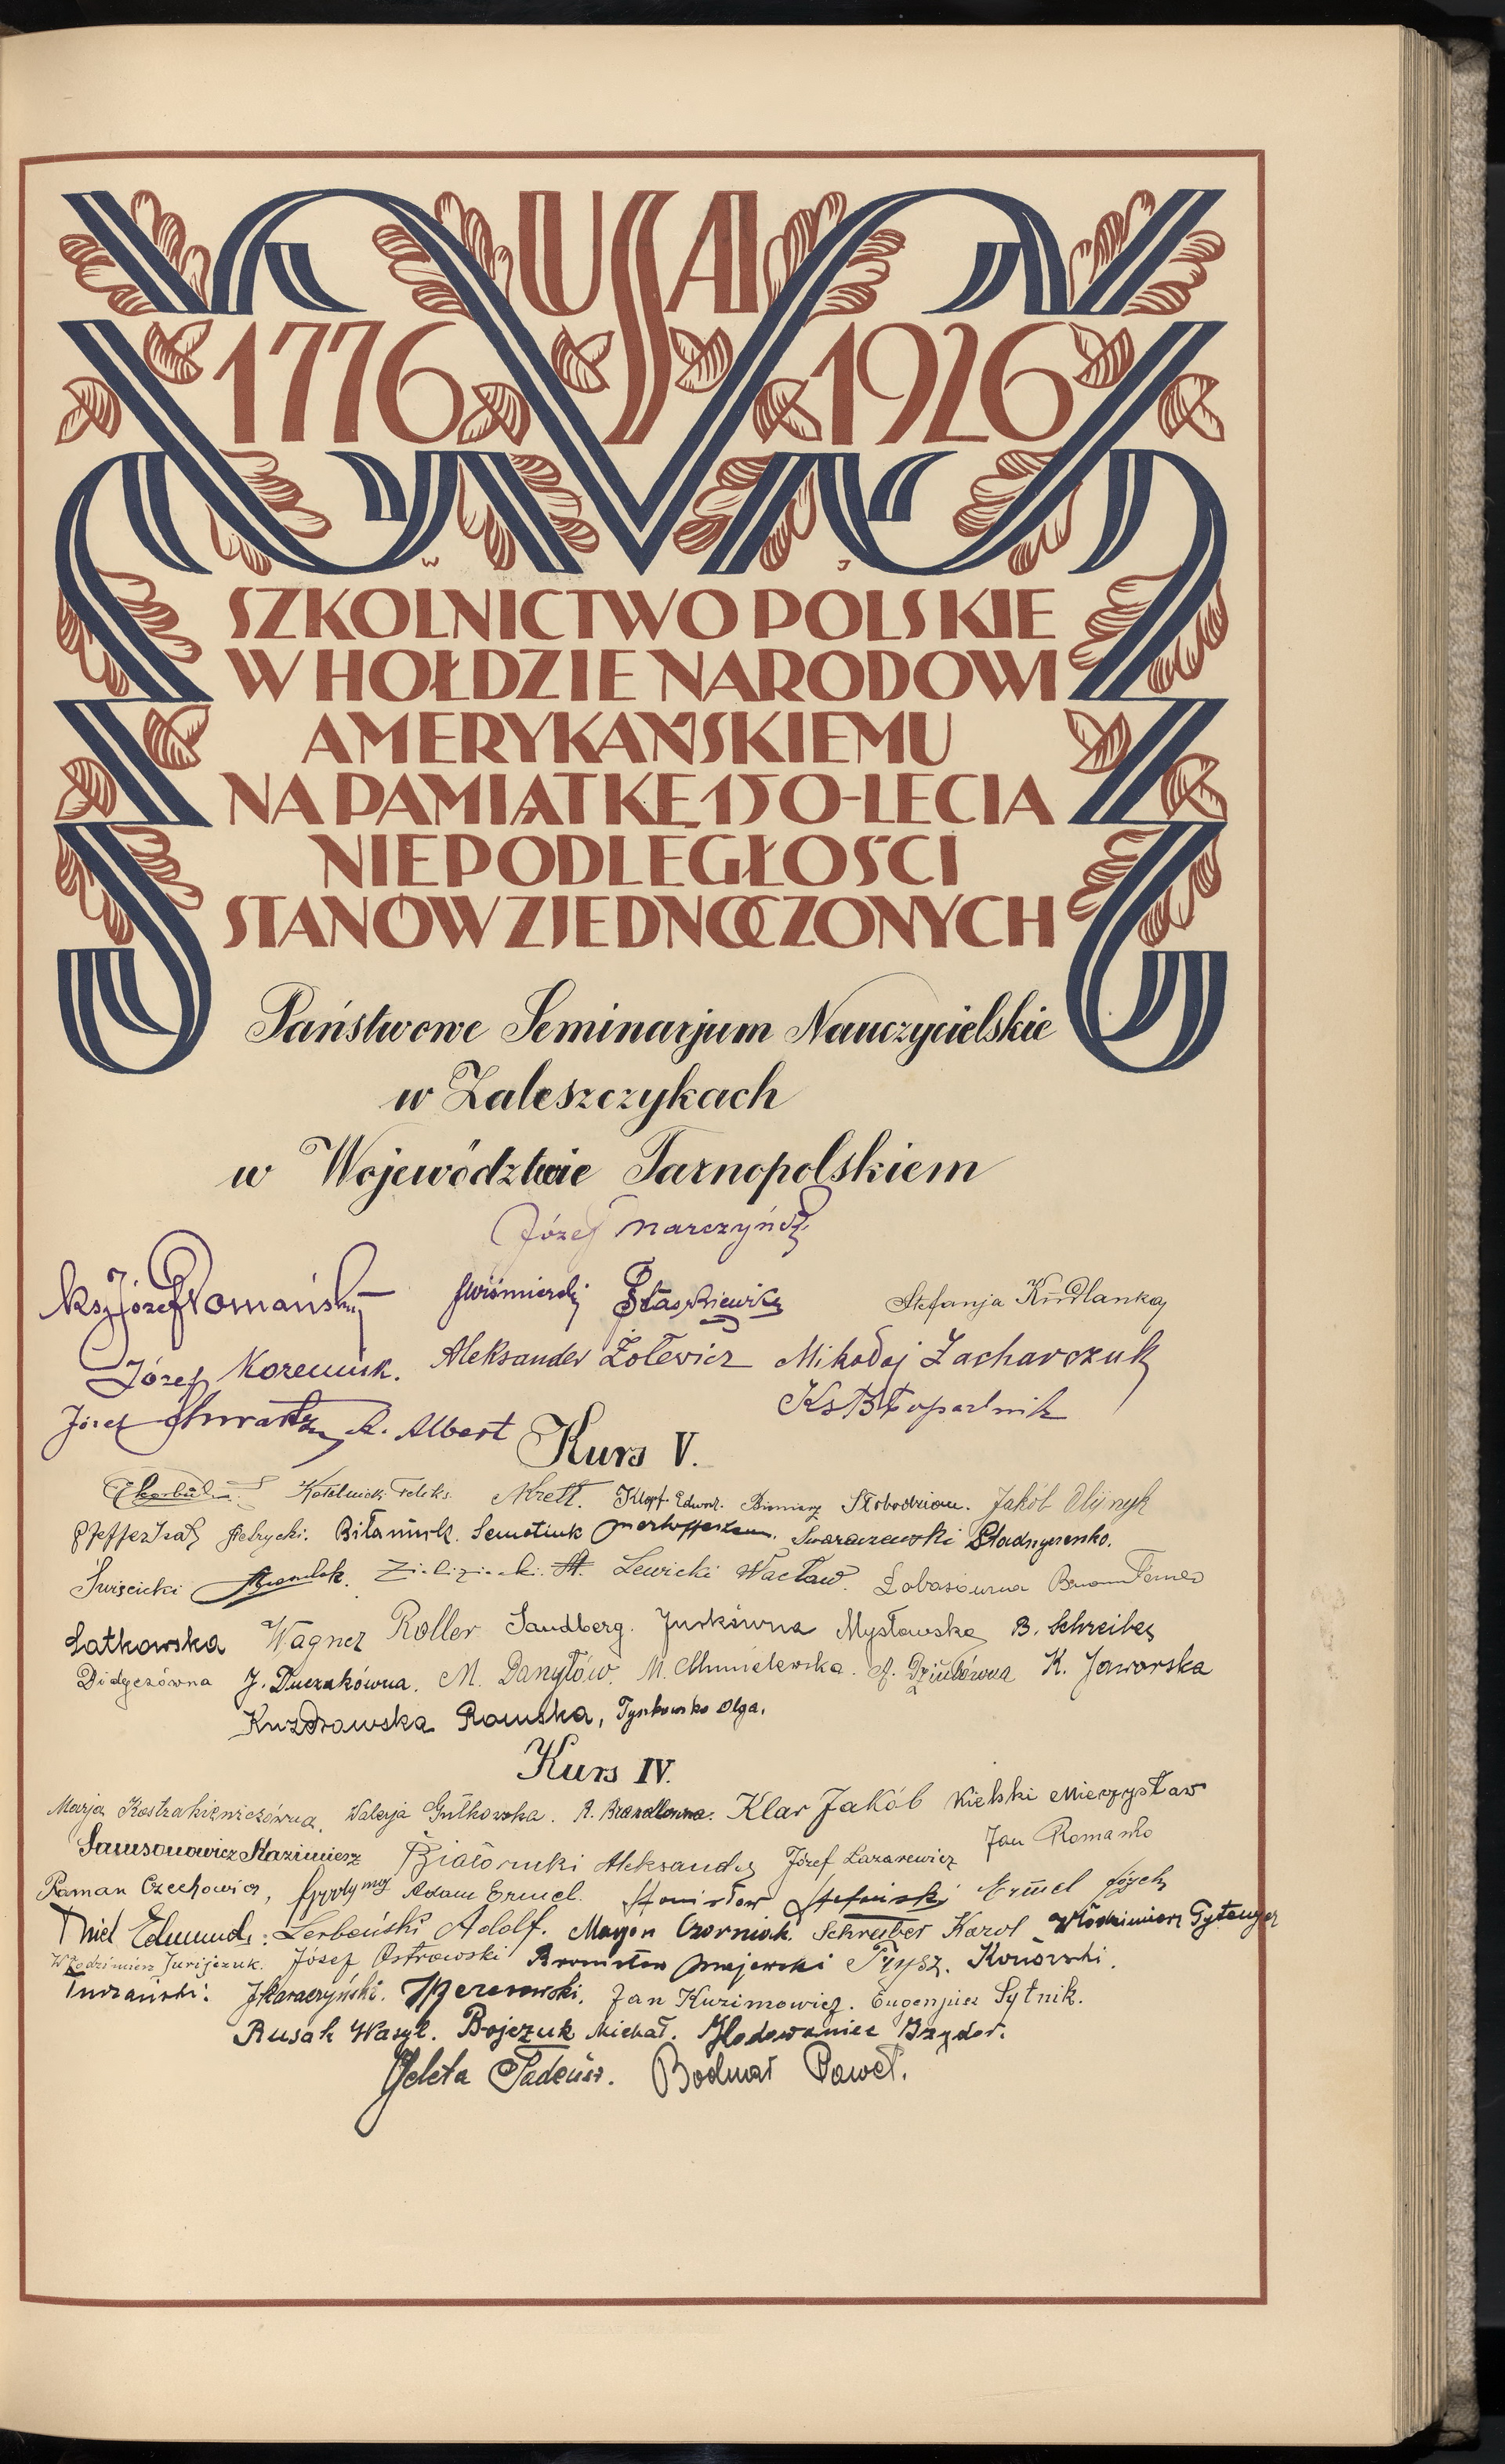 USA
1776 1926
W J
SZKOLNICTWO POLSKIE
W HOŁDZIE NARODOWI
AMERYKAŃSKIEMU
NA PAMIĄTKĘ 150-LECIA
NIEPODLEGŁOŚCI
STANÓW ZJEDNOCZONYCH
Państwowe Seminarjum Nauczycielskie
w Zaleszczykach
w Województwie Tarnopolskiem
Józef
Ks. Józef Stefanja Kudlanka
Józef Aleksander Żolewicz Mikołaj Zacharczuk
Józef Schwartz A. Albert Ks B Łopadnik
Kurs V.
Kotelnicki Feliks. Krett. Klopf Edwar. Słobodzian. Jakób Olijnyk
Bilaniuk. Semotiuk Swaraczewski
Święcicki Lewicki Wacław. Łobasówna
Łatkowska Wagner Roller Sandberg. Jurkówna Mysławska B. Schreiber
Didyczówna J. Duczakówna. M. Danyłów. M. Chmielewska. A. Dziubówna K. Jaworska
Kruzdrowska Romska, Tynkowska Olga.
Kurs IV.
Marja Kostrakiewiczówna. Walerja Gulkowska. Klar Jakób Kielski Mieczysław
Samsonowicz Kazimierz Białoruski Aleksander Józef Lazarewicz Jan Romanko
Roman Czechowicz, Adam Ermel. Stanisław Stefański Ermel Józef
Thiel Edmund. Lerbański Adolf. Maryan Czorniak. Schreiber Karol Włodzimierz
Włodzimierz Jurijczuk. Józef Ostrowski Bronisław Majewski Trysz. Konowski.
Turzański. Jan Kurimowicz. Eugenjusz Sytnik.
Rusak Wasyl. Bojczuk Michał. Hodowaniec Izydor.
Geleta Tadeusz. Bodnar Paweł.